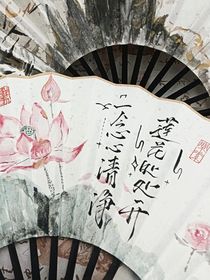 蓮花处处开
一念心清淨